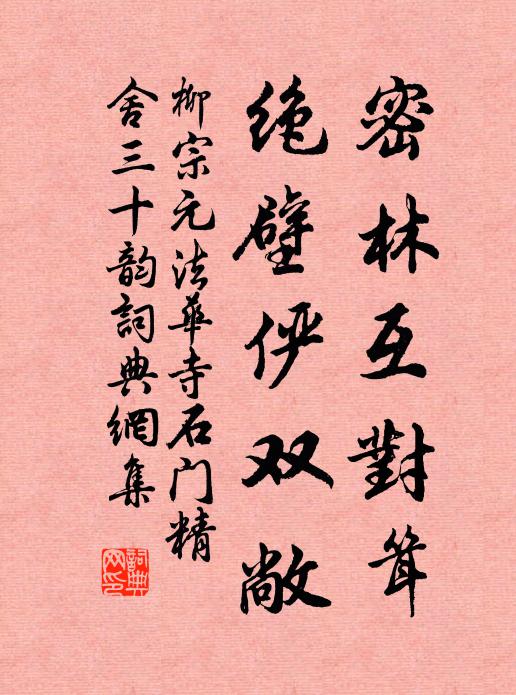 密林互對耸
绝壁俨双敞
柳宗元法華寺石门精
舍三十韵詞典網集
詞典
网印